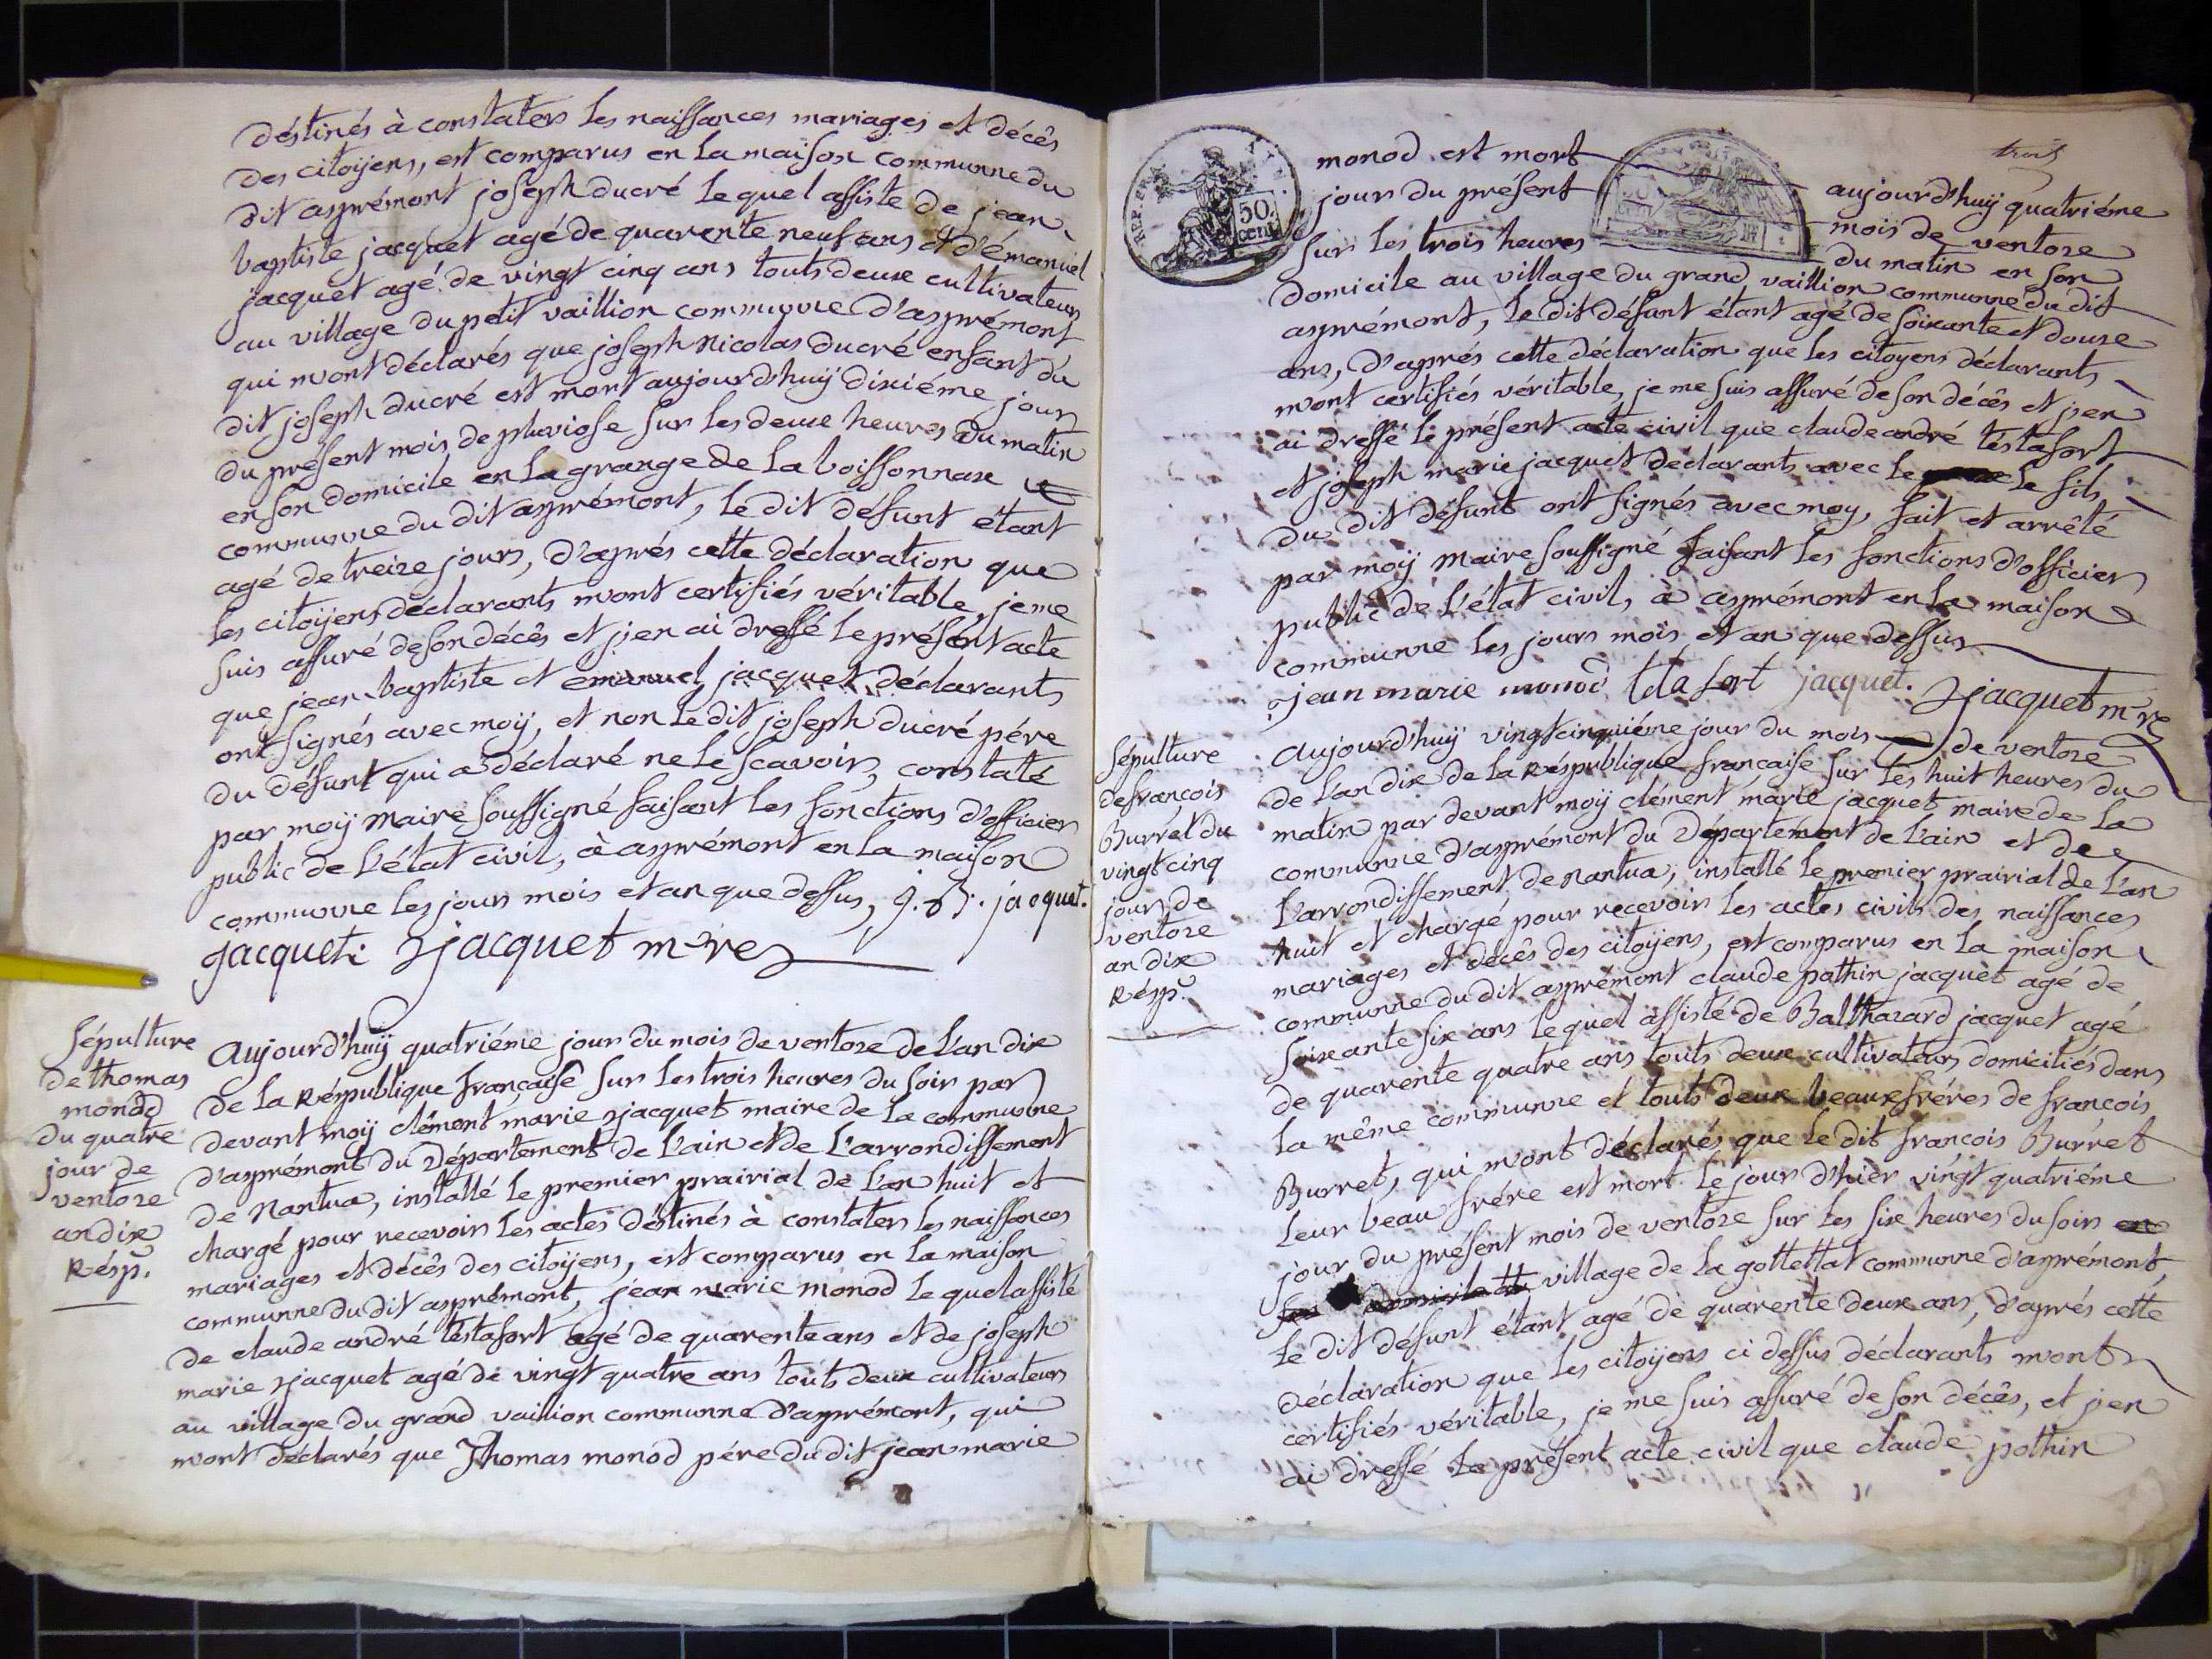 déstinés à constater les naissances mariages et décês
des citoÿens, est comparus en la maison communne du
dit asprémont joseph ducré le quel assiste de jean
baptiste jacquet agé de quarente neuf ans et d'émanuel
jacquet agé de vingt cinq ans touts deux cultivateurs
au village du petit vaillion communne d'asprémont
qui m'ont déclarés que joseph nicolas ducré enfant du
dit joseph ducré est mort aujourd'huÿ dixiéme jour
du présent mois de pluviose sur les deux heures du matin
en son domicile en la grange de la boissonnax
communne du dit asprémont, le dit défunt étant
agé de treize jours, d'aprés cette déclaration que
les citoÿens déclarants m'ont certifiés véritable, je me
suis assuré de son décês et j'en ai dressé le présent acte
que jean baptiste et émanuel jacquet déclarants
ont signés avec moÿ, et non le dit joseph ducré pére
du défunt qui a déclaré ne le scavoir, constaté
par moÿ maire soussigné faisant les fonctions d'officier
public de l'état civil, à asprémont en la maison
communne les jours mois et an que dessus, j. B. jacquet.
jacquet jacquet m^re
Sépulture
de thomas
monod
du quatre
jour de
ventoze
an dix
Résp.
aujourd'huÿ quatriéme jour du mois de ventoze de l'an dix
de la Réspublique francaise sur les trois heures du soir par
devant moÿ clément marie jacquet maire de la communne
d'asprémont du Département de l'ain et de l'arrondissement
de Nantua, installé le premier prairial de l'an huit et
chargé pour recevoir les actes déstinés à constater les naissances
mariages et décês des citoÿens, est comparus en la maison
communne du dit asprémont, jean marie monod le quel assisté
de claude andré téstafort agé de quarente ans et de joseph
marie jacquet agé de vingt quatre ans touts deux cultivateurs
au village du grand vaillion communne d'asprémont, qui
m'ont déclarés que Thomas monod pére du dit jean marie
trois
REP. FRA.
50.
cent
monod est mort aujourd'huÿ quatriéme
jour du présent mois de ventoze
sur les trois heures du matin en son
domicile au village du grand vaillion communne du dit
asprémont, le dit défunt étant agé de soixante et douze
ans, d'aprés cette déclaration que les citoyens déclarants
m'ont certifiés véritable, je me suis assuré de son décês et j'en
ai dressé le présent acte civil que claude andré téstafort
et joseph marie jacquet déclarants avec le le fils
du dit défunt ont signés avec moy, fait et arrêté
par moÿ maire soussigné faisant les fonctions d'officier
public de l'état civil, à asprémont en la maison
communne les jours mois et an que dessus
jean marie monod jacquet. jacquet m^re
Sépulture
de francois
Burret du
vingt cinq
jour de
ventoze
an dix
Résp.
aujourd'huÿ vingt cinquiéme jour du mois de ventoze
de l'an dix de la Réspublique francaise sur les huit heures du
matin par devant moÿ clément marie jacquet maire de la
communne d'asprémont du Département de l'ain et de
l'arrondissement de nantua, installé le premier prairial de l'an
huit et chargé pour recevoir les actes civils des naissances
mariages et décês des citoÿens, est comparus en la maison
communne du dit asprémont claude pothin jacquet agé de
soixante six ans lequel assisté de Balthazard jacquet agé
de quarente quatre ans touts deux cultivateurs domiciliés dans
la même communne et touts deux beaux fréres de francois
Burret, qui m'ont déclarés que le dit francois Burret
leur beau frére est mort le jour d'hier vingt quatriéme
jour du présent mois de ventoze sur les six heures du soir en
son domicile village de la gottettat communne d'asprémont,
le dit défunt étant agé de quarente deux ans, d'aprés cette
déclaration que les citoÿens ci dessus déclarants m'ont
certifiés véritable, je me suis assuré de son décês, et j'en
ai dressé le présent acte civil que claude pothin